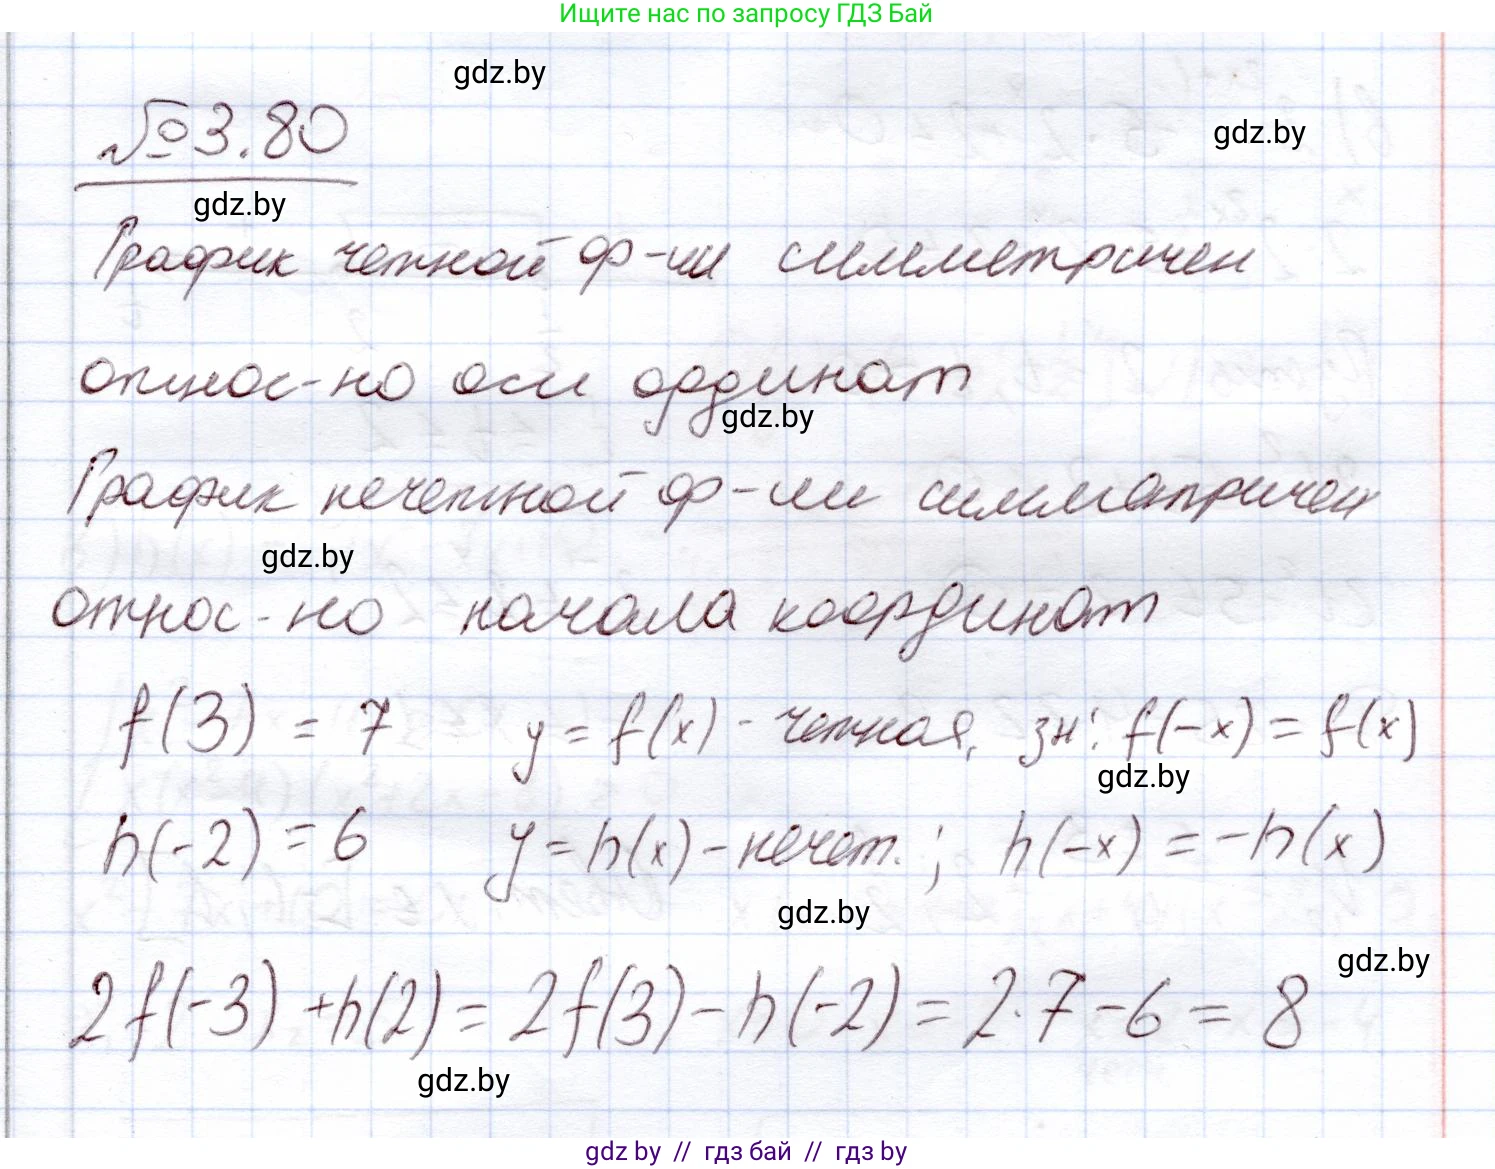 Ищите нас по запросу ГДЗ Бай
gdz.by
№3.80
gdz.by
gdz.by
График четной ф-ии симметричен
относ-но оси ординат
gdz.by
График нечетной ф-ии симметричен
gdz.by
относ-но начала координат
f(3) = 7 y = f(x) - четная, зн: f(-x) = f(x)
gdz.by
h(-2) = 6 y = h(x) - нечет.; h(-x) = -h(x)
gdz.by
gdz.by
2f(-3) + h(2) = 2f(3) - h(-2) = 2·7 - 6 = 8
gdz.by
gdz by // гдз бай // гдз by